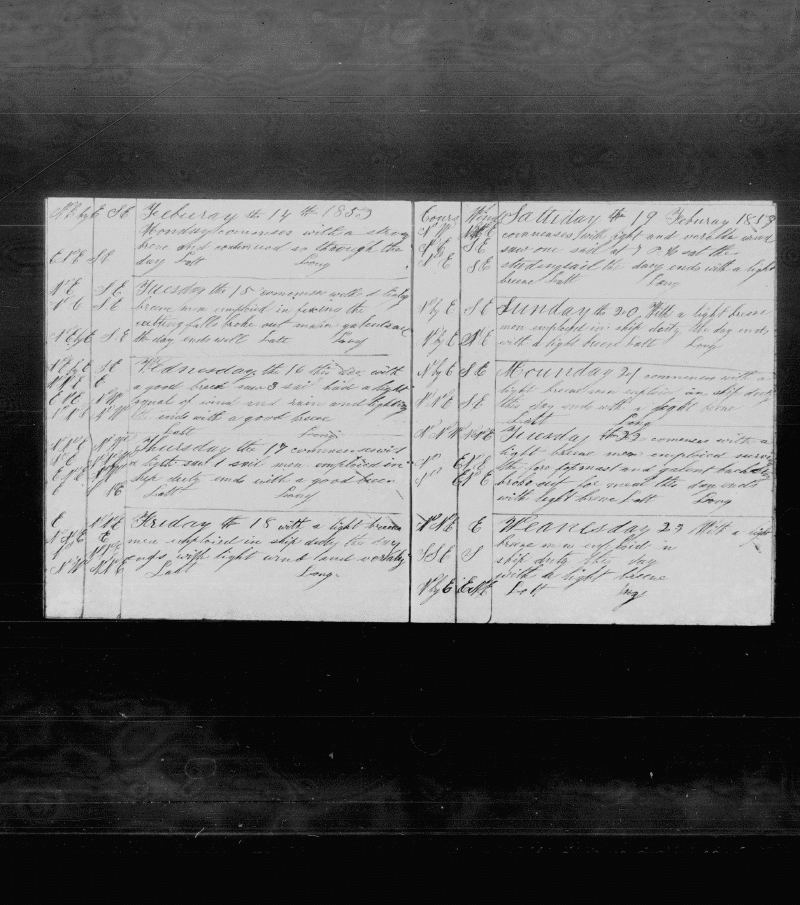 N E by E S E Feburay the 14 th 1853
Monday comenses with a strong
brese and continued so through the
E N E S E day Latt Long
N E S E Tuesday the 15 comenses with a
N E S E breese men emploid in fixing the
cutting falls broke out main
N E by E S E the day ends with Latt Long
N E by E S E Wednesday the 16
N N E E a good breese saw 3 sail had a light
E N E N W squal of wind and rain and lightning
N N E N W the ends with a good breese
Latt Long
Thursday the 17 commenses with
N E a light saw 1 sail men emploid in
ship duty ends with a good breese
E N E Latt Long
E N N E Friday the 18 with a light breese
E men emploid in ship duty the day
ends with light wind and
N W N N E Latt Long
Cours Winds Satturday the 19 Feburay 1853
N W comenses with light and verable wind
N E S E saw one sail at 7 P M set the
N E S E studingsail the day ends with a light
breese Latt Long
N by E S E Sunday the 20 With a light breese
men emploid in ship duty the day ends
N by E N E with a light breese Latt Long
N by E S E Mounday 21 commenses with a
light breese men emploid in ship duty
N N E S E this day ends with a light breese
Latt Long
N N W N E Tuesday the 22 comenses with a
light breese men emploied
N E N E the fore topmast and galent backstay
N E N E broke out for meat the day ends
with light breese Latt Long
N N E E Weanesday 23 With a light
breese men emploid in
S S E S ship duty the day
with a light breese
N by E E N E Latt Long